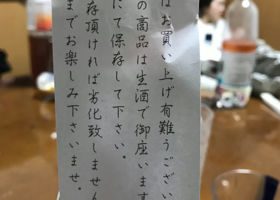 はお買い上げ有難うござい
の商品は生酒で御座います
にて保存して下さい。
存頂ければ劣化致しません
までお楽しみ下さいませ。